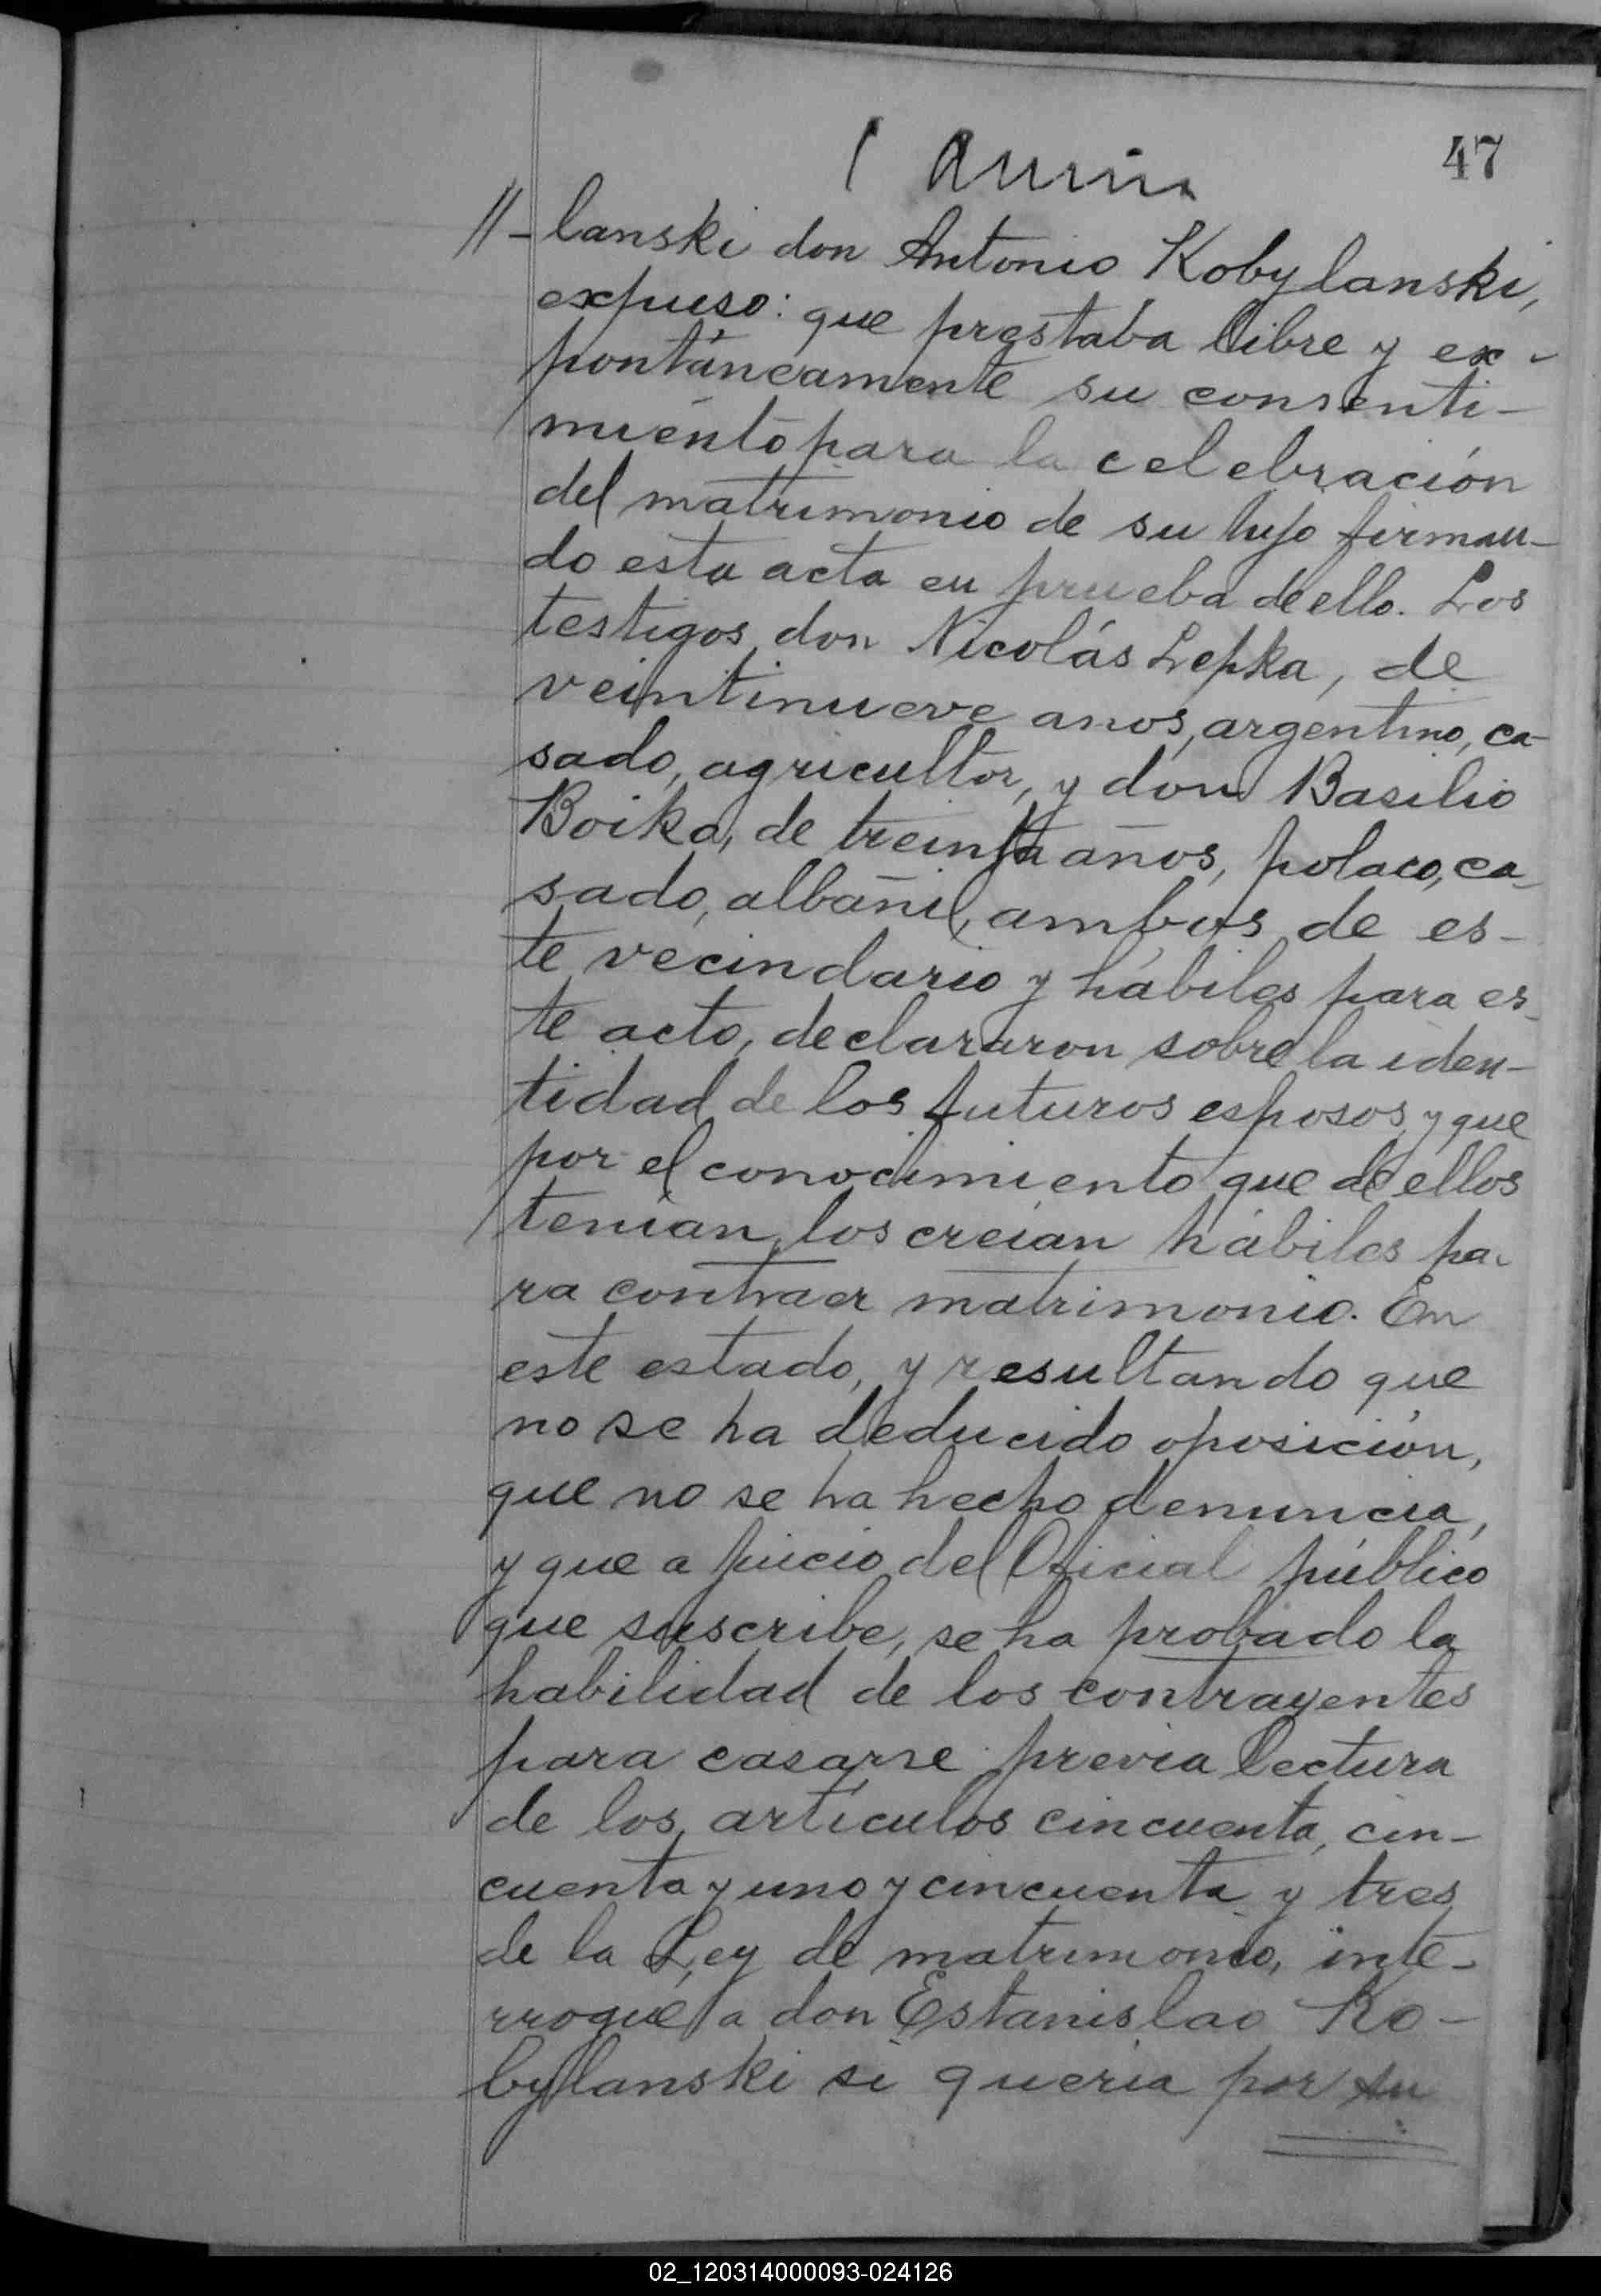 47
//-lanski don Antonio Kobylanski,
expuso: que prestaba libre y ex-
pontáneamente su consenti-
miento para la celebración
del matrimonio de su hijo firman-
do esta acta en prueba de ello. Los
testigos, don Nicolás Lepka, de
veintinueve anos, argentino, ca-
sado, agricultor, y don Basilio
Boika, de treinta años, polaco, ca-
sado, albañil, ambos de es-
te vecindario y hábiles para es-
te acto, declararon sobre la iden-
tidad de los futuros esposos y que
por el conocimiento que de ellos
tenían, los creían hábiles pa-
ra contraer matrimonio. En
este estado, y resultando que
no se ha deducido oposición,
que no se ha hecho denuncia,
y que a juicio del Oficial público
que suscribe, se ha probado la
habilidad de los contrayentes
para casarse previa lectura
de los artículos cincuenta, cin-
cuenta y uno y cincuenta y tres
de la Ley de matrimonio, inte-
rrogué a don Estanislao Ko-
bylanski si quería por su
02_120314000093-024126